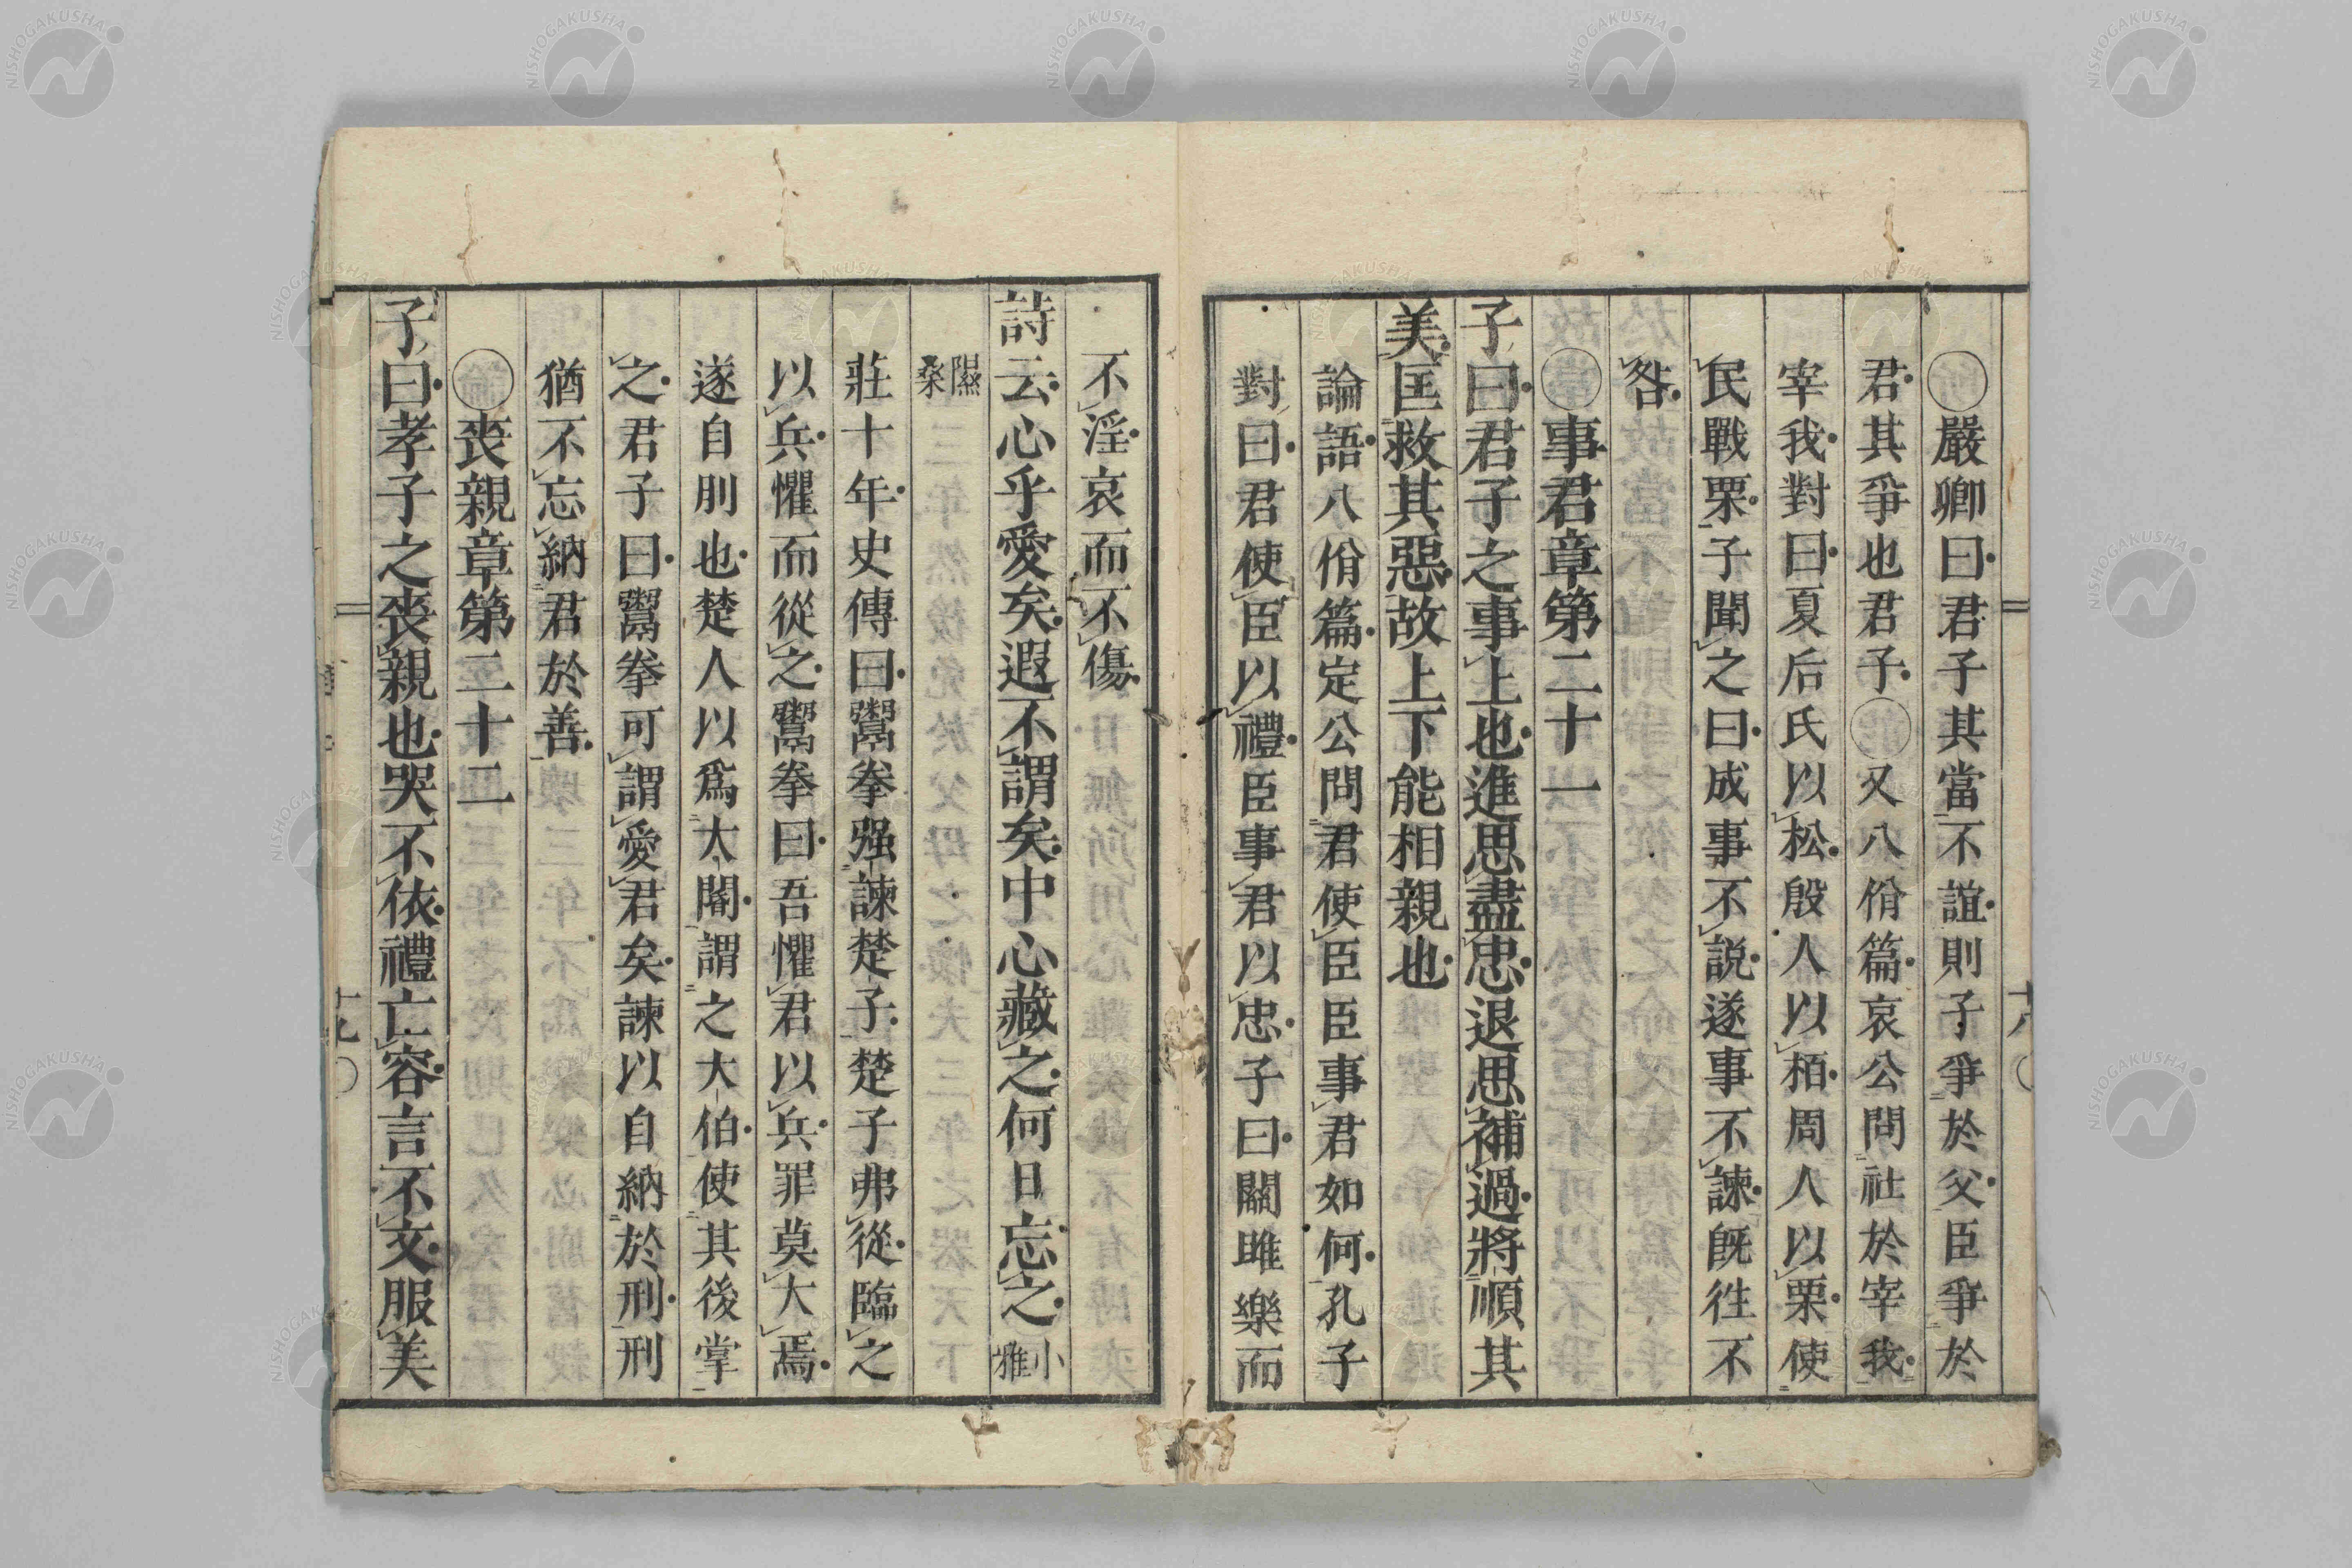 ○嚴卿曰君子其當不誼則子爭於父臣爭於
君其爭也君子○又八佾篇哀公問社於宰我
宰我對曰夏后氏以松殷人以栢周人以栗使
民戰栗子聞之曰成事不說遂事不諫旣徃不
咎
○事君章第二十一
子曰君子之事上也進思盡忠退思補過將順其
美匡救其惡故上下能相親也
論語八佾篇定公問君使臣臣事君如何孔子
對曰君使臣以禮臣事君以忠子曰關雎樂而
不淫哀而不傷
詩云心乎愛矣遐不謂矣中心藏之何日忘之小雅
隰桑
莊十年史傳曰鬻拳强諫楚子楚子弗從臨之
以兵懼而從之鬻拳曰吾懼君以兵罪莫大焉
遂自刖也楚人以爲大閽謂之大伯使其後掌
之君子曰鬻拳可謂愛君矣諫以自納於刑刑
猶不忘納君於善
○喪親章第二十二
子曰孝子之喪親也哭不依禮亡容言不文服美
十八
十九
NISHOGAKUSHA